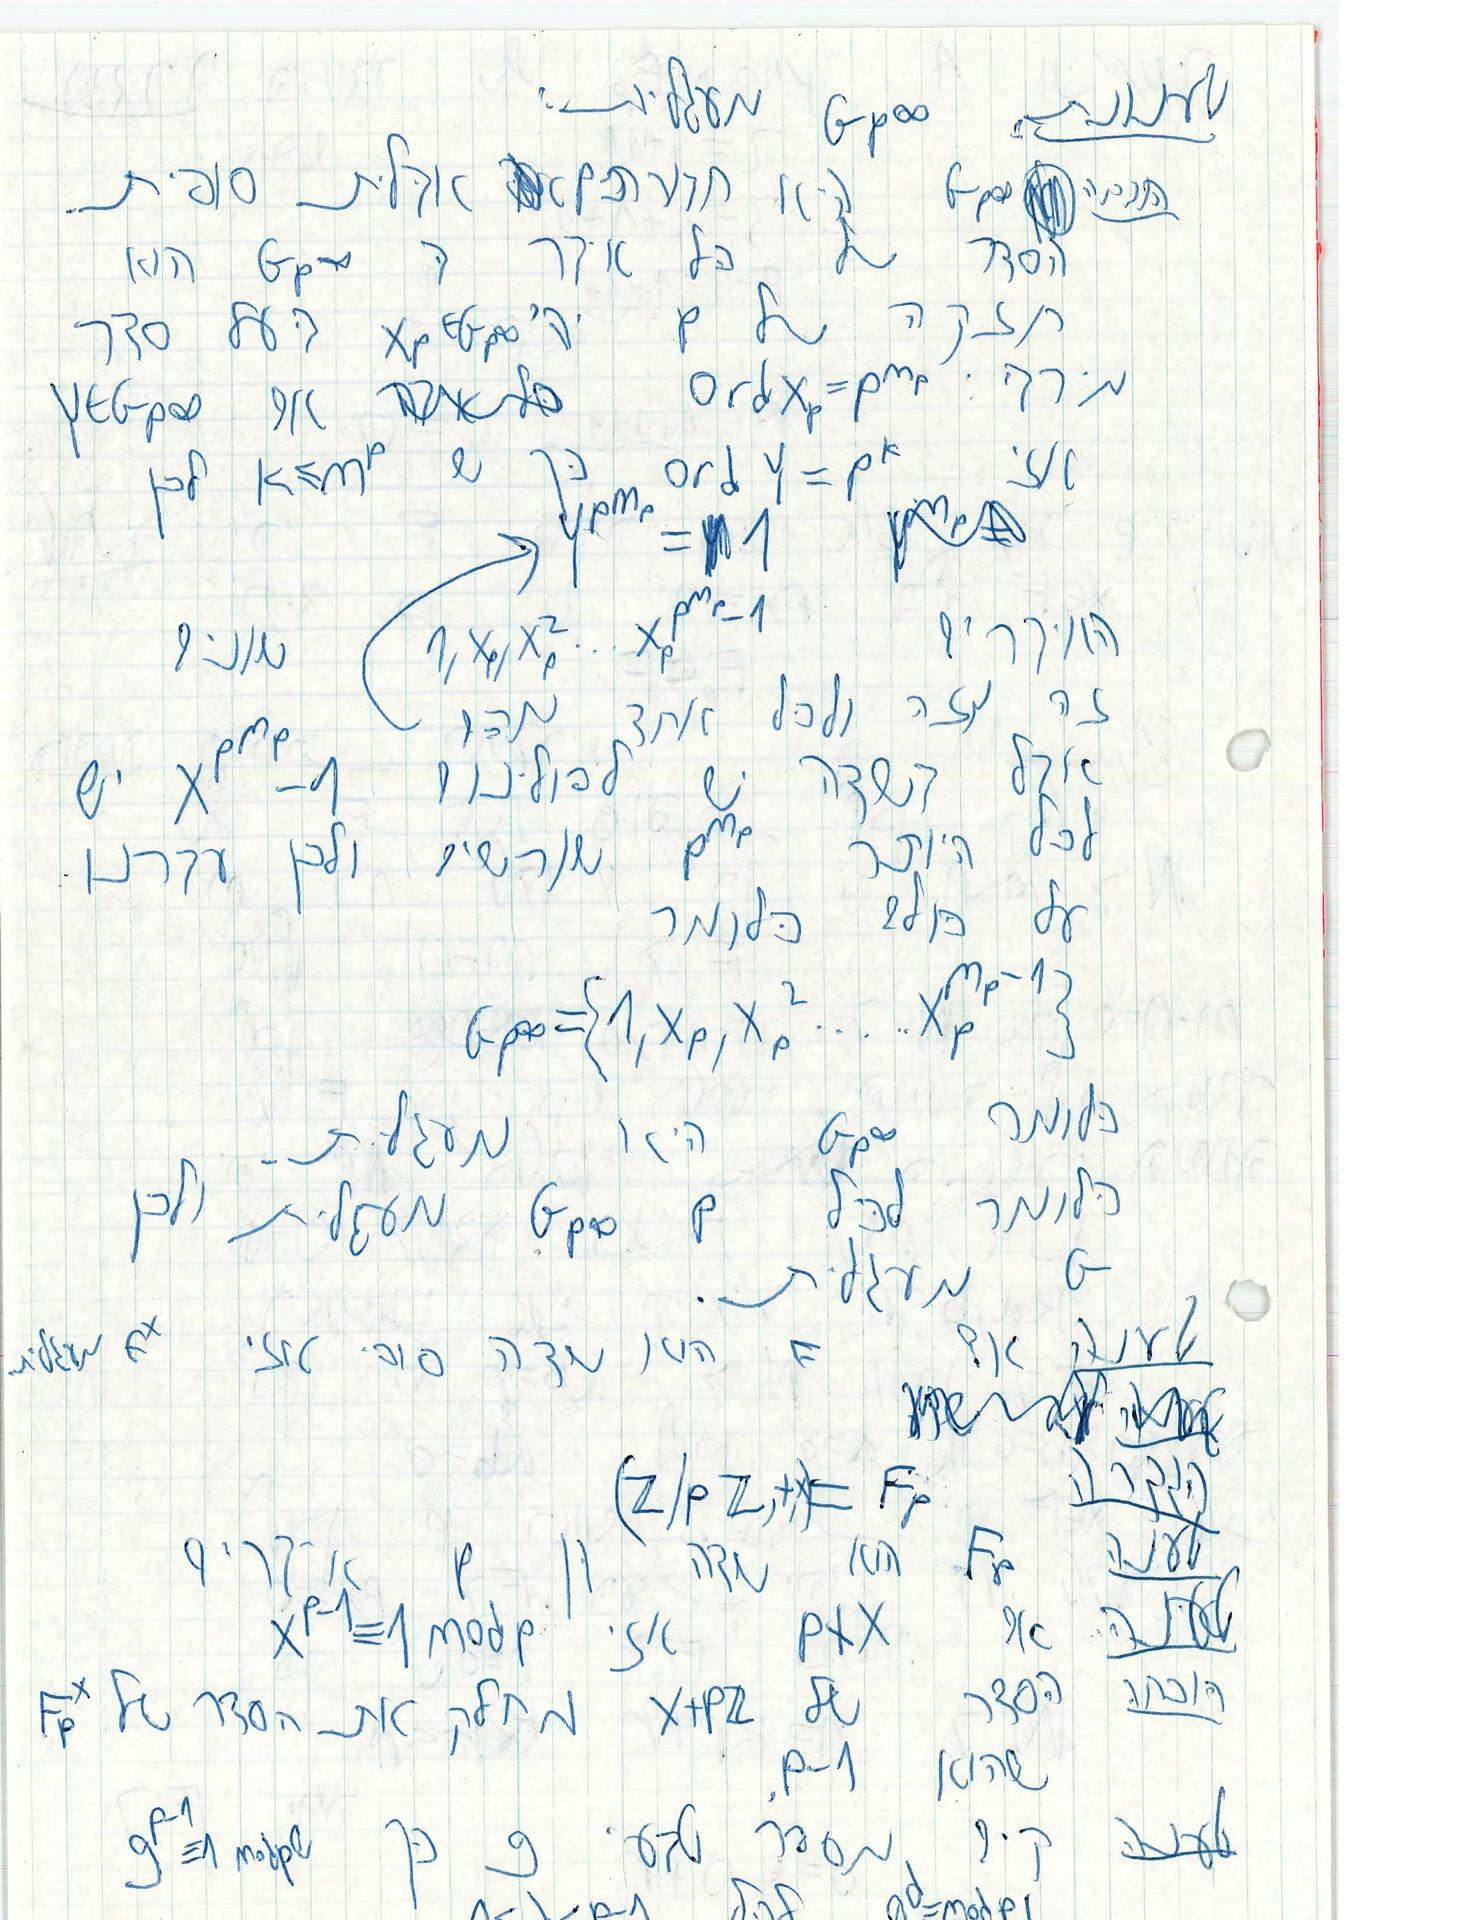 טענה G_{p^∞} מעגלית.
הוכחה G_{p^∞} היא חבורת אבלית סופית.
הסדר של כל איבר ב G_{p^∞} הוא
חזקה של p יהי x_p∈G_{p^∞} בעל סדר
מירבי: ord x_p = p^{m_p} אם y∈G_{p^∞}
אזי ord y = p^k כך ש k≤m_p לכן
y^{p^{m_p}} = 1
האיברים 1, x_p, x_p^2 ... x_p^{p^{m_p}-1} שונים
זה מזה ולכל אחד מהם
אבל בשדה יש לפולינום x^{p^{m_p}} -1 יש
לכל היותר p^{m_p} שורשים ולכן עברנו
על כולם כלומר
G_{p^∞} = {1, x_p, x_p^2 ..... x_p^{m_p-1}}
כלומר G_{p^∞} היא מעגלית.
כלומר לכל p G_{p^∞} מעגלית ולכן
G מעגלית.
טענה אם F הוא שדה סופי אזי F^x מעגלית
הגדרה F_p = (Z/pZ,+,x)
טענה F_p הוא שדה בן p איברים
טענה אם p∤x אזי x^{p-1}≡1 mod p
הוכחה הסדר של x+pZ מחלק את הסדר של F_p^x
שהוא p-1.
טענה קיים מספר טבעי g כך שg^{p-1}≡1 mod p